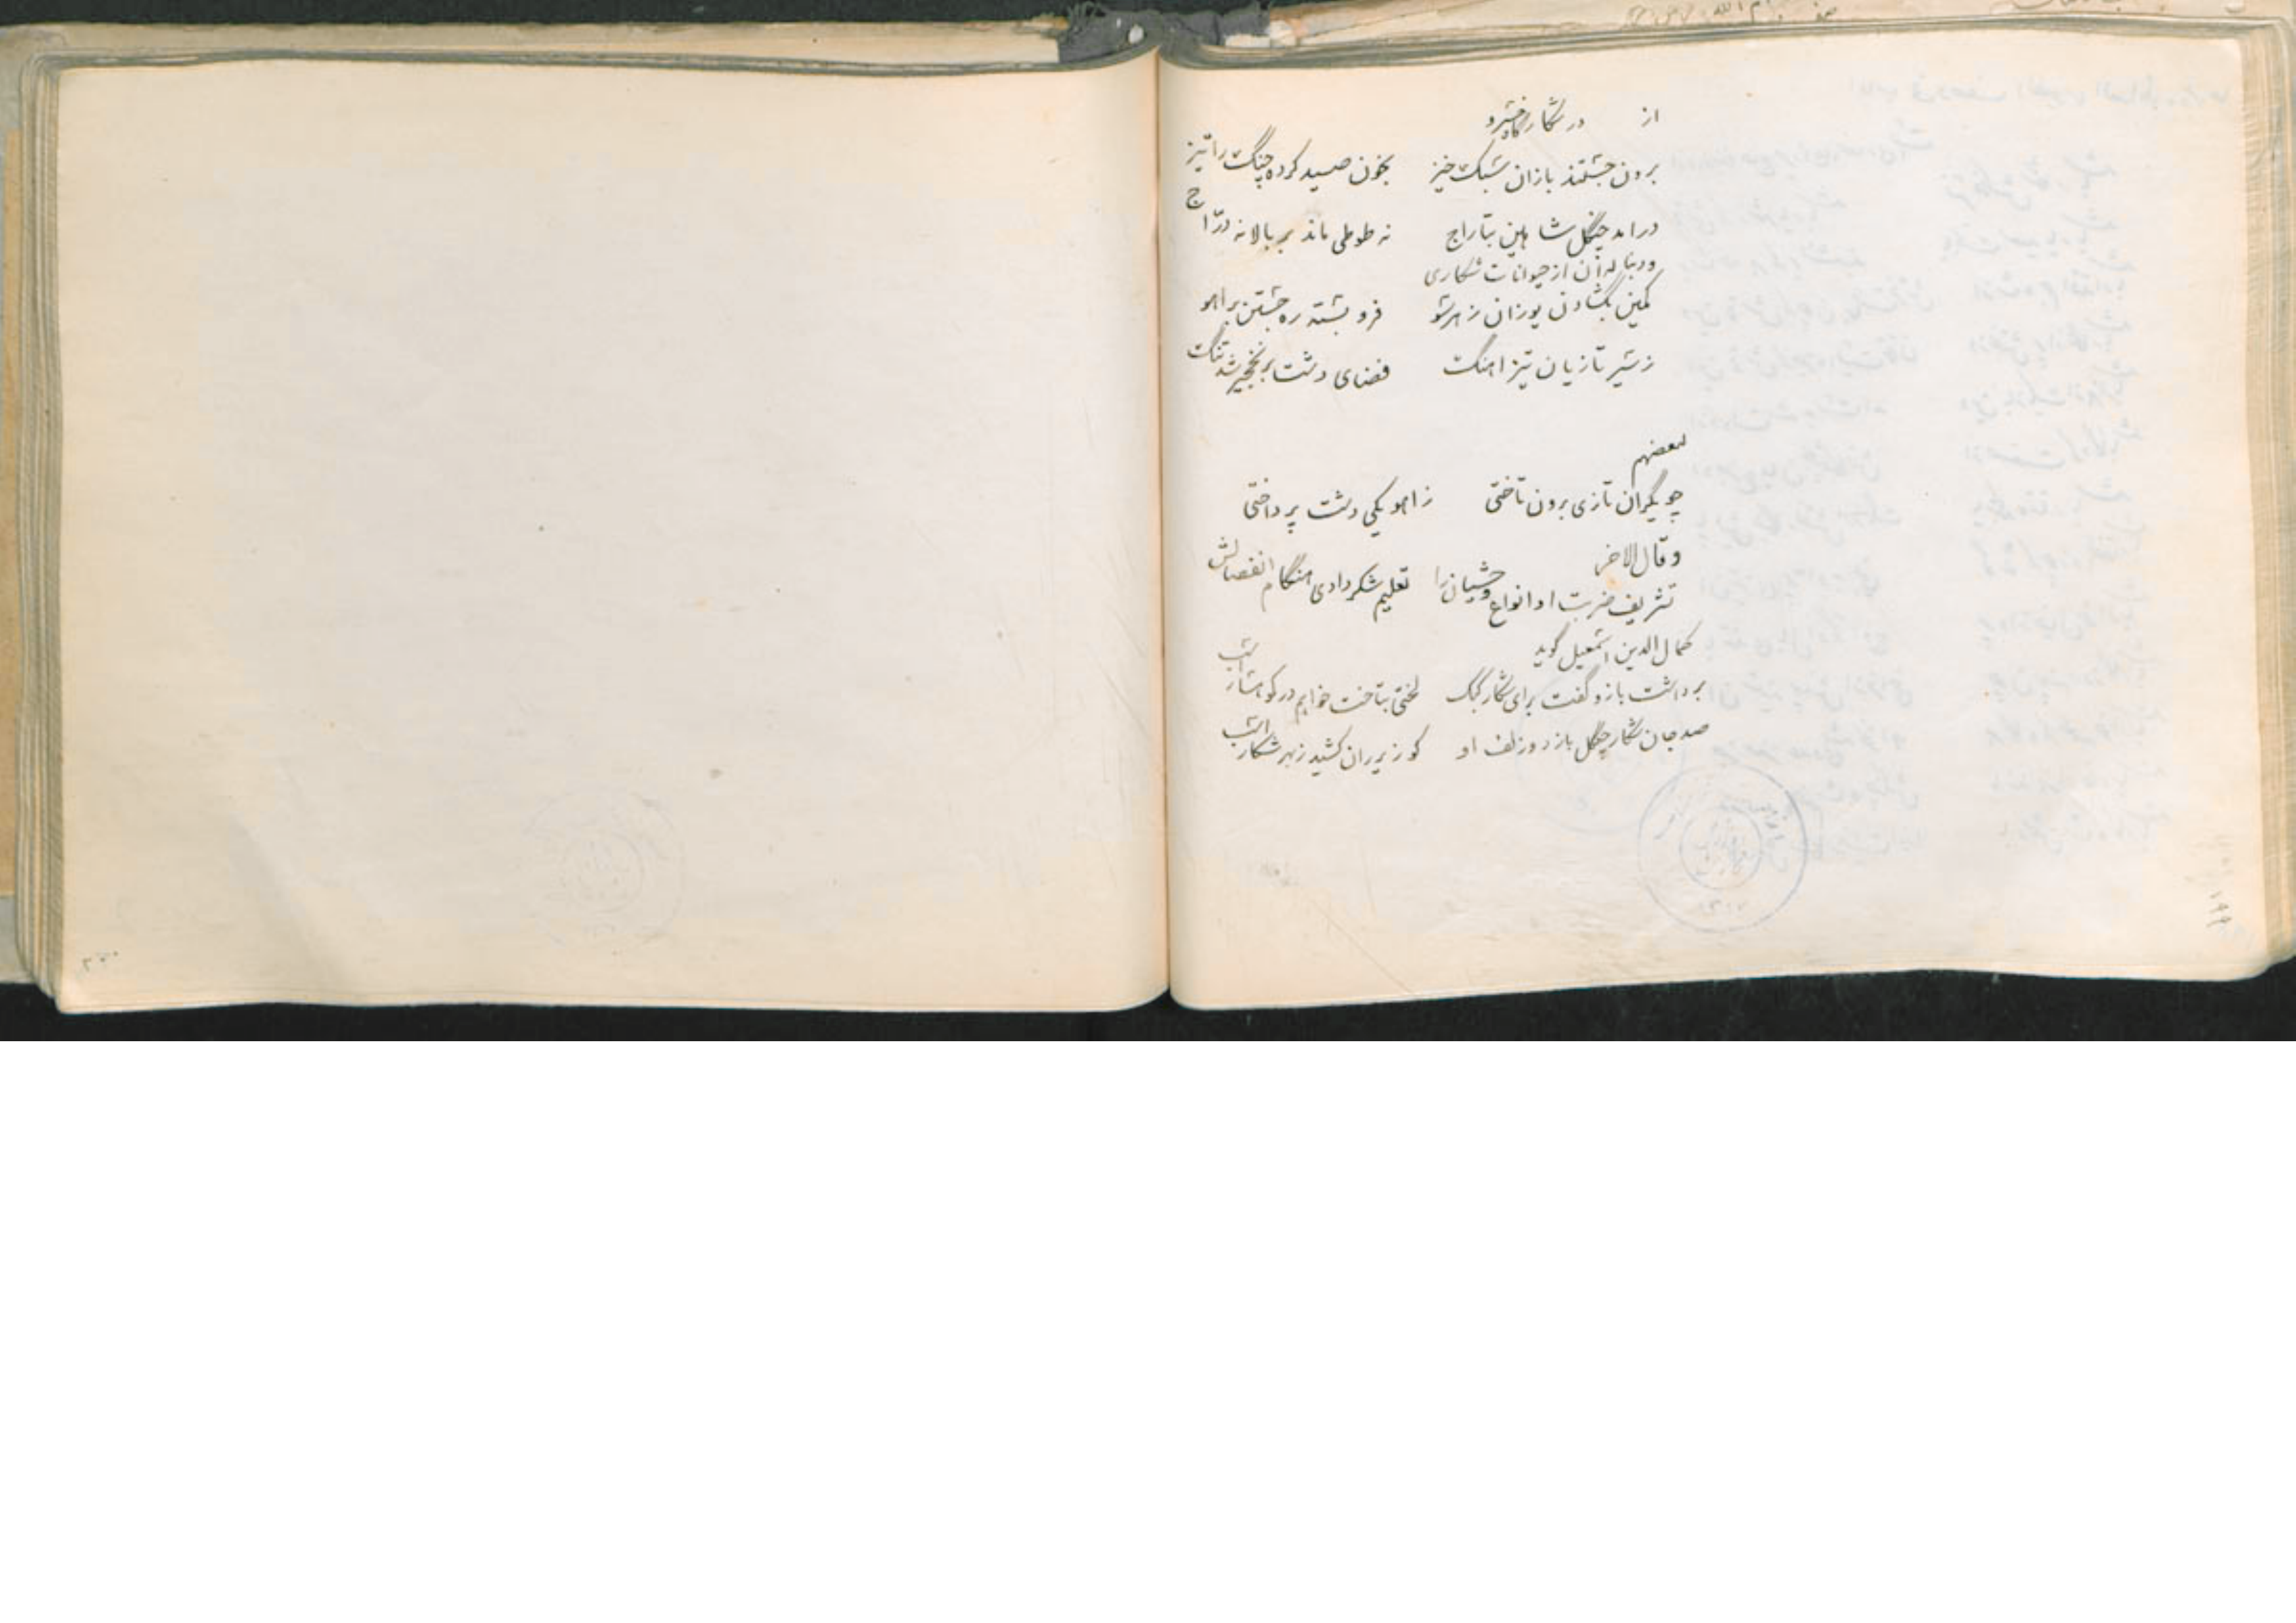 از در شکارگاه خسرو
برون جستند بازان سبک خیز بخون صید کرده چنگ را تیز
درامد چنگل شاهین بتاراج نه طوطی ماند بر بالا نه درّاج
ودنباله آن از حیوانات شکاری
کمین بگشادن یوزان ز هر سو فرو بسته ره جستن بر اهو
ز سیر تازیان تیز اهنگ فضای دشت بر نخجیر شد تنگ
لبعضهم
چو یکران تازی برون تاختی ز اهو یکی دشت پرداختی
وقال الاخر
تشریف ضربت او انواع وحشیان را تعلیم شکر دادی هنگام انفصالش
کمال الدین اسمعیل گوید
برداشت باز و گفت برای شکار کبک لختی بتاخت خواهم در کوهسار اسب
صد جان شکار چنگل باز دو زلف او کو زیر ران کشید ز بهر شکار اسب
۱۹۹
۲۰۰